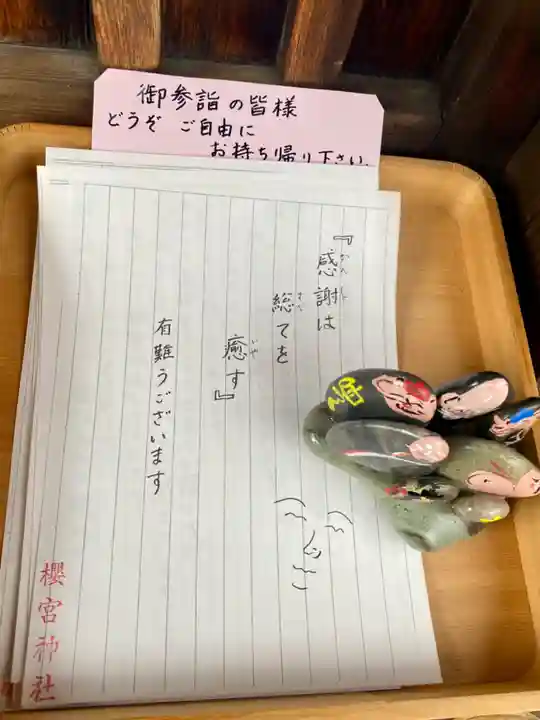 御参詣の皆様
どうぞ ご自由に
お持ち帰り下さい。
『感謝は
かんしゃ
総てを
すべ
癒す』
いや
有難うございます
櫻宮神社